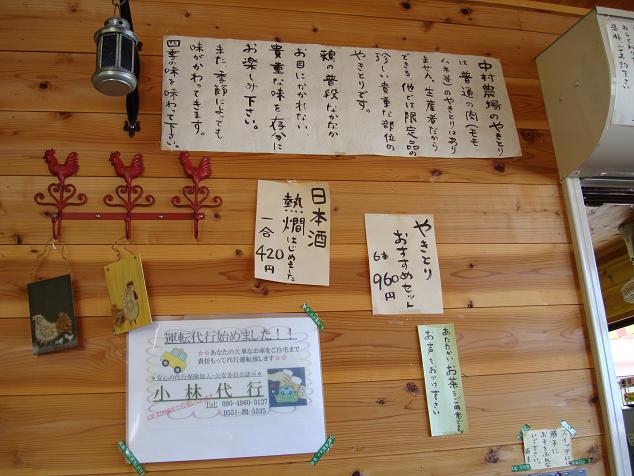 中村農場のやきとり
は普通の肉(モモ
ムネ等)のやきとりはあり
ません。生産者だから
できる他では限定品の
珍しい貴重な部位の
やきとりです。
鶏の普段なかなか
お目にかかれない
貴重な味を存分に
お楽しみ下さい。
また、季節によっても
味がかわってきます。
四季の味を味わって下さい。
日本酒
熱燗はじめました
一合
420円
やきとり
おすすめセット
6本
960円
運転代行始めました!!
☆☆あなたの大事なお車をご自宅まで
責任もって代行運転致します☆☆
★安心の代行保険加入・公安委員会認可★
小林代行
Tel: 090-4960-3127
あたたかいお茶
お声をおかけ下さい
スイッチに
勝手に